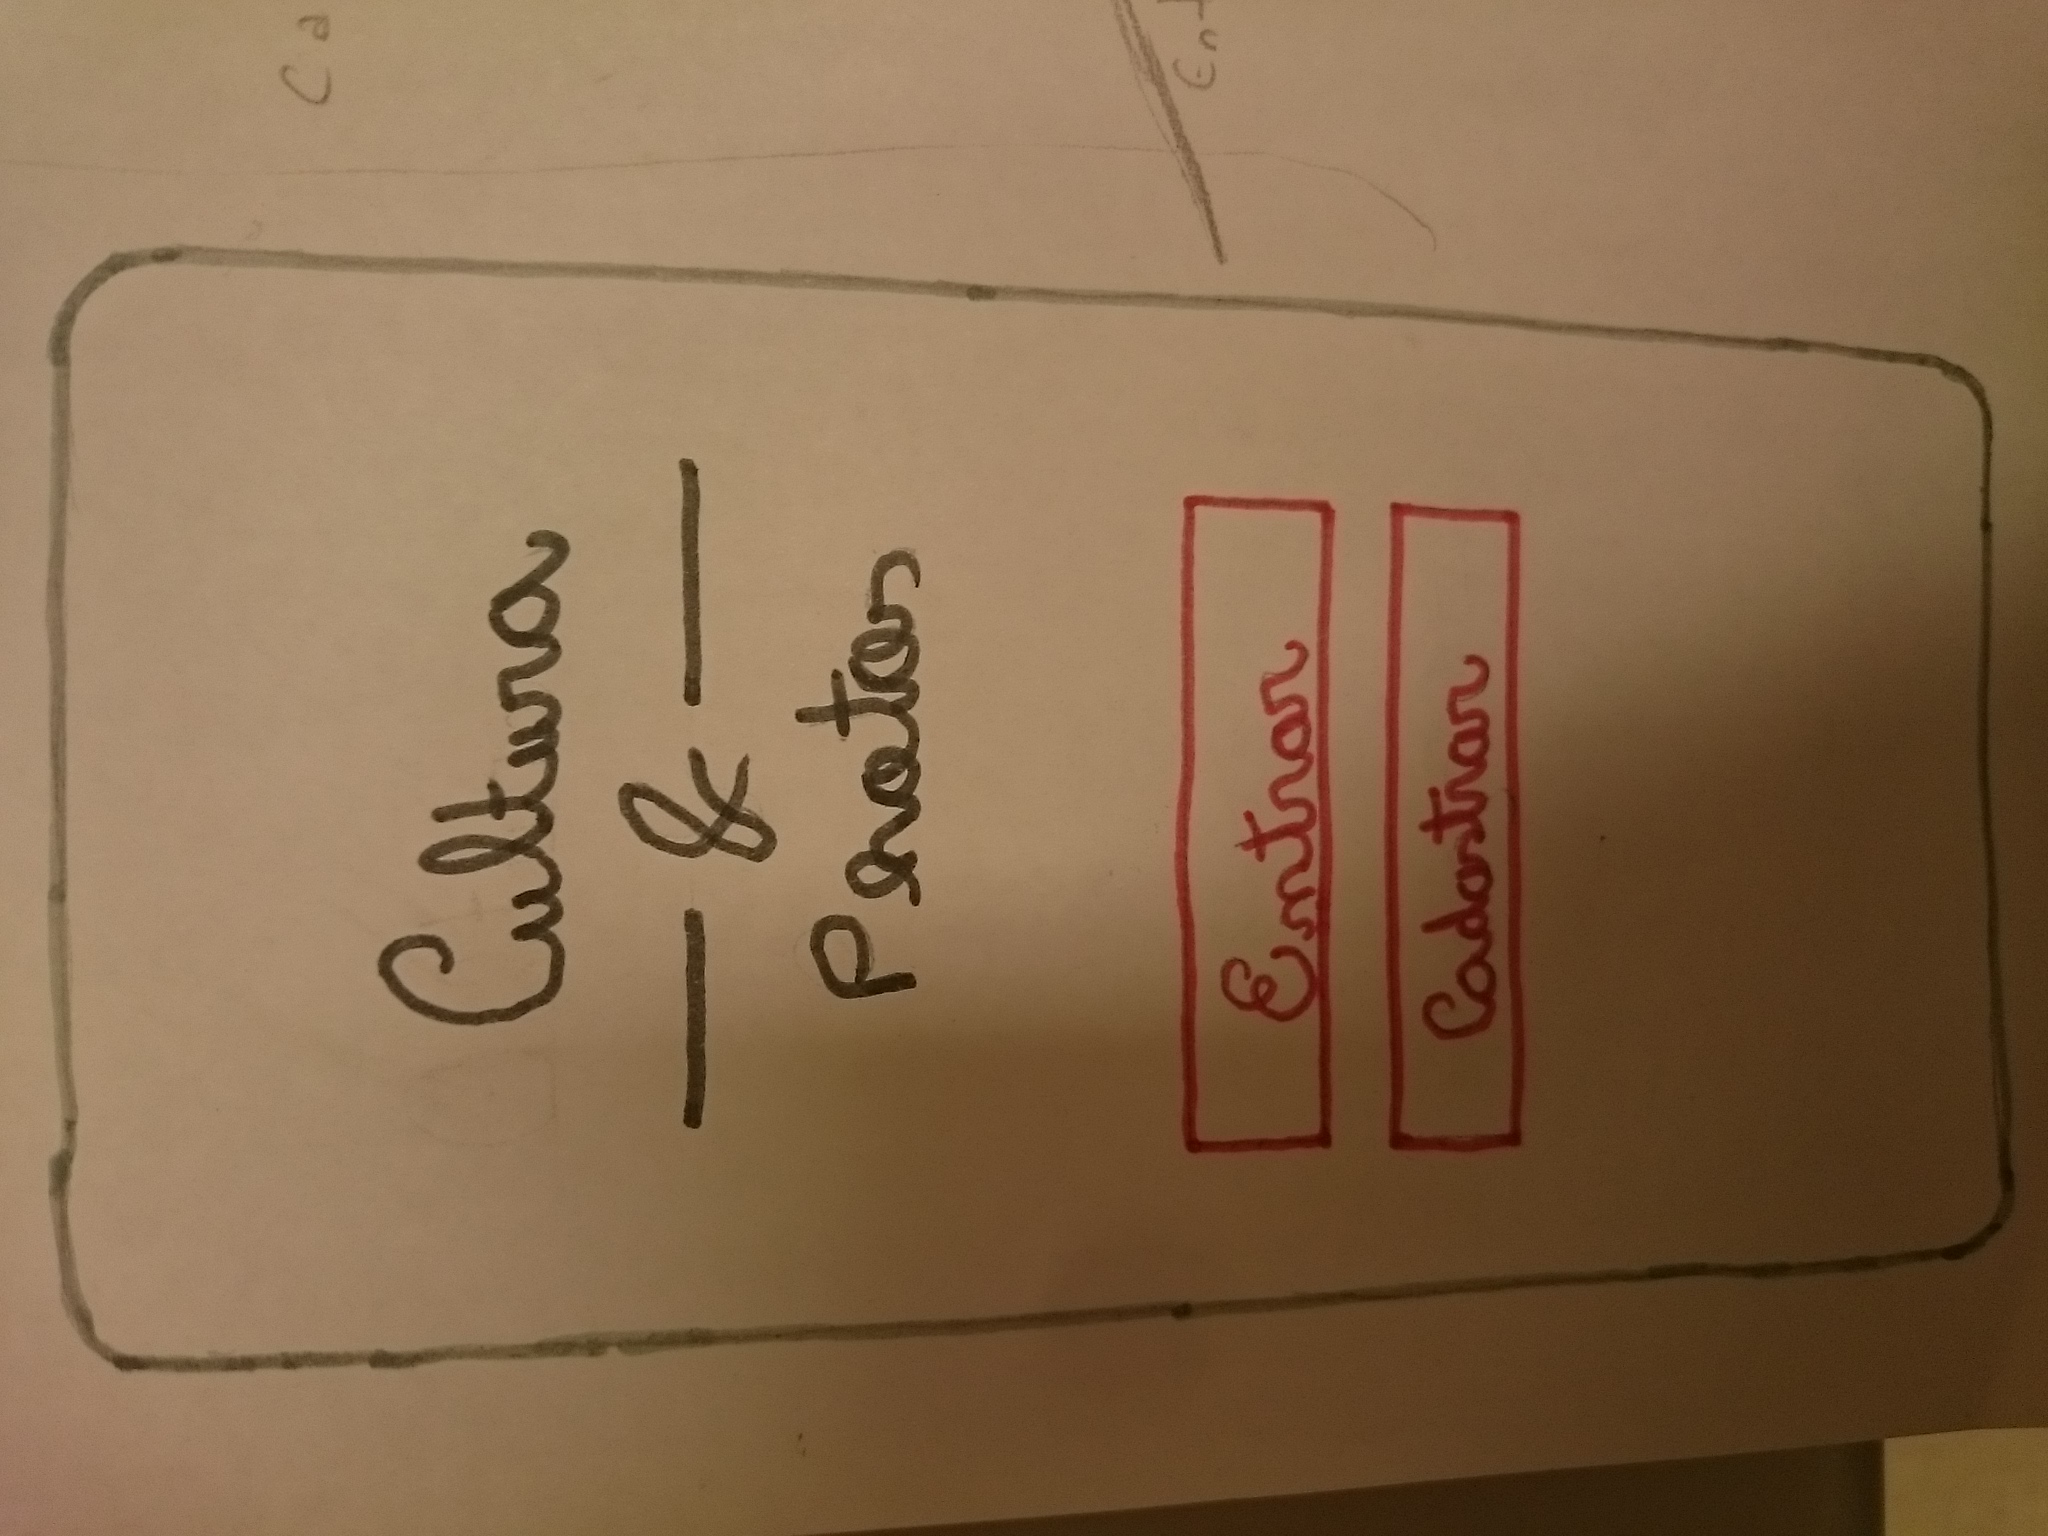 Cultura
&
Entrar
Cadastrar
Ca
Ent